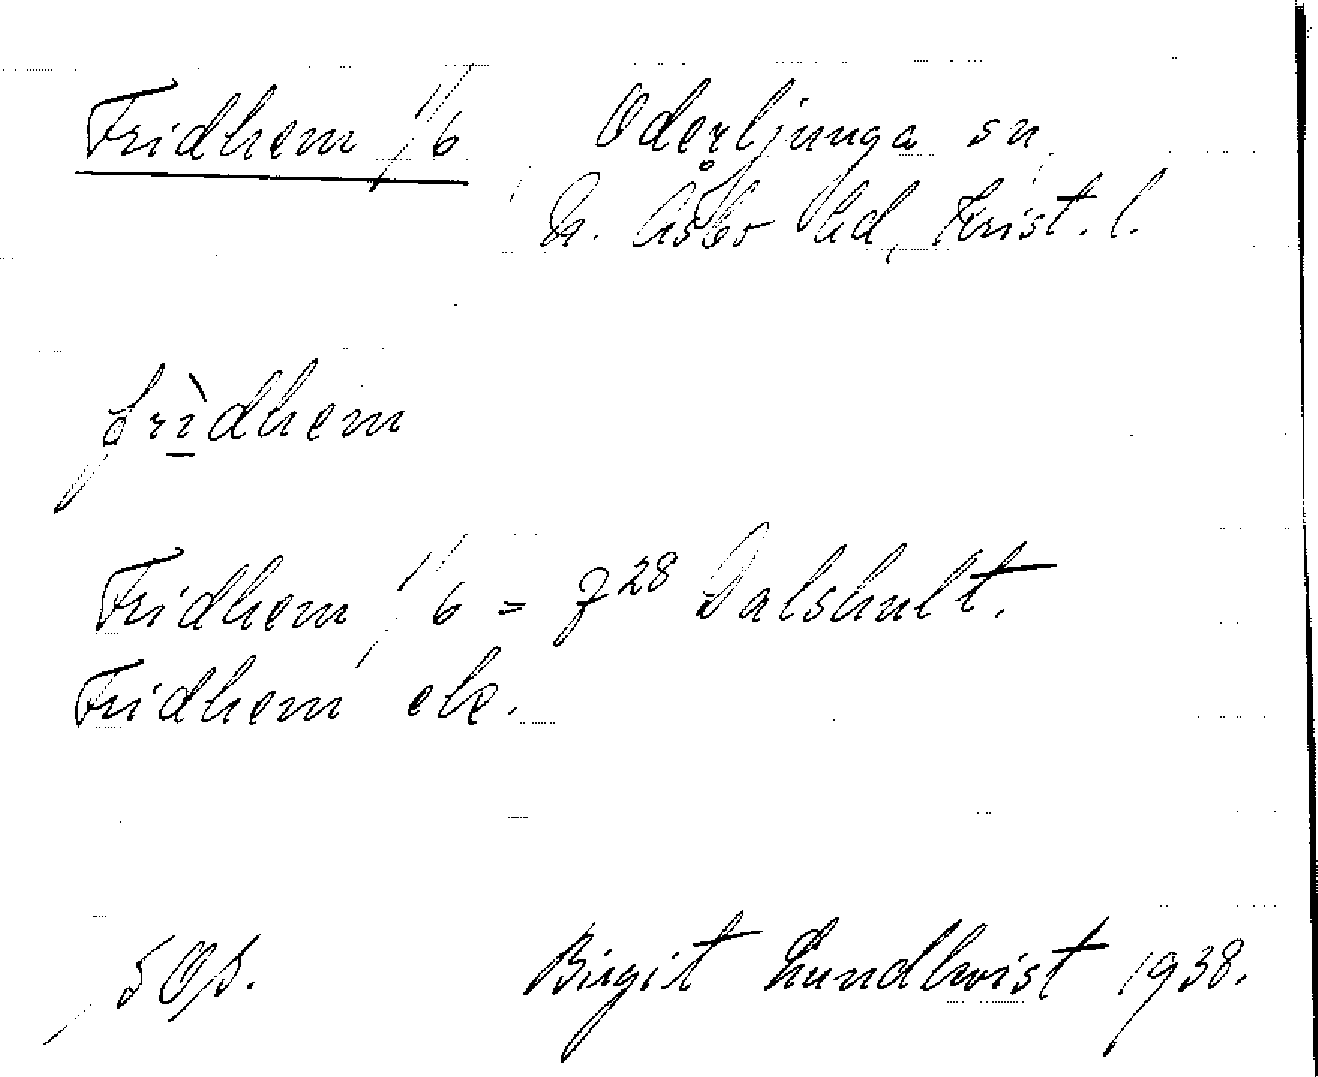 Fridhem 1/6 Oderljunga sn
N. Åsbo hd, Krist. l.
fridhem
Fridhem 1/6 = 7²⁸ Dalshult.
Fridhem ek.
Birgit Lundkvist 1938.